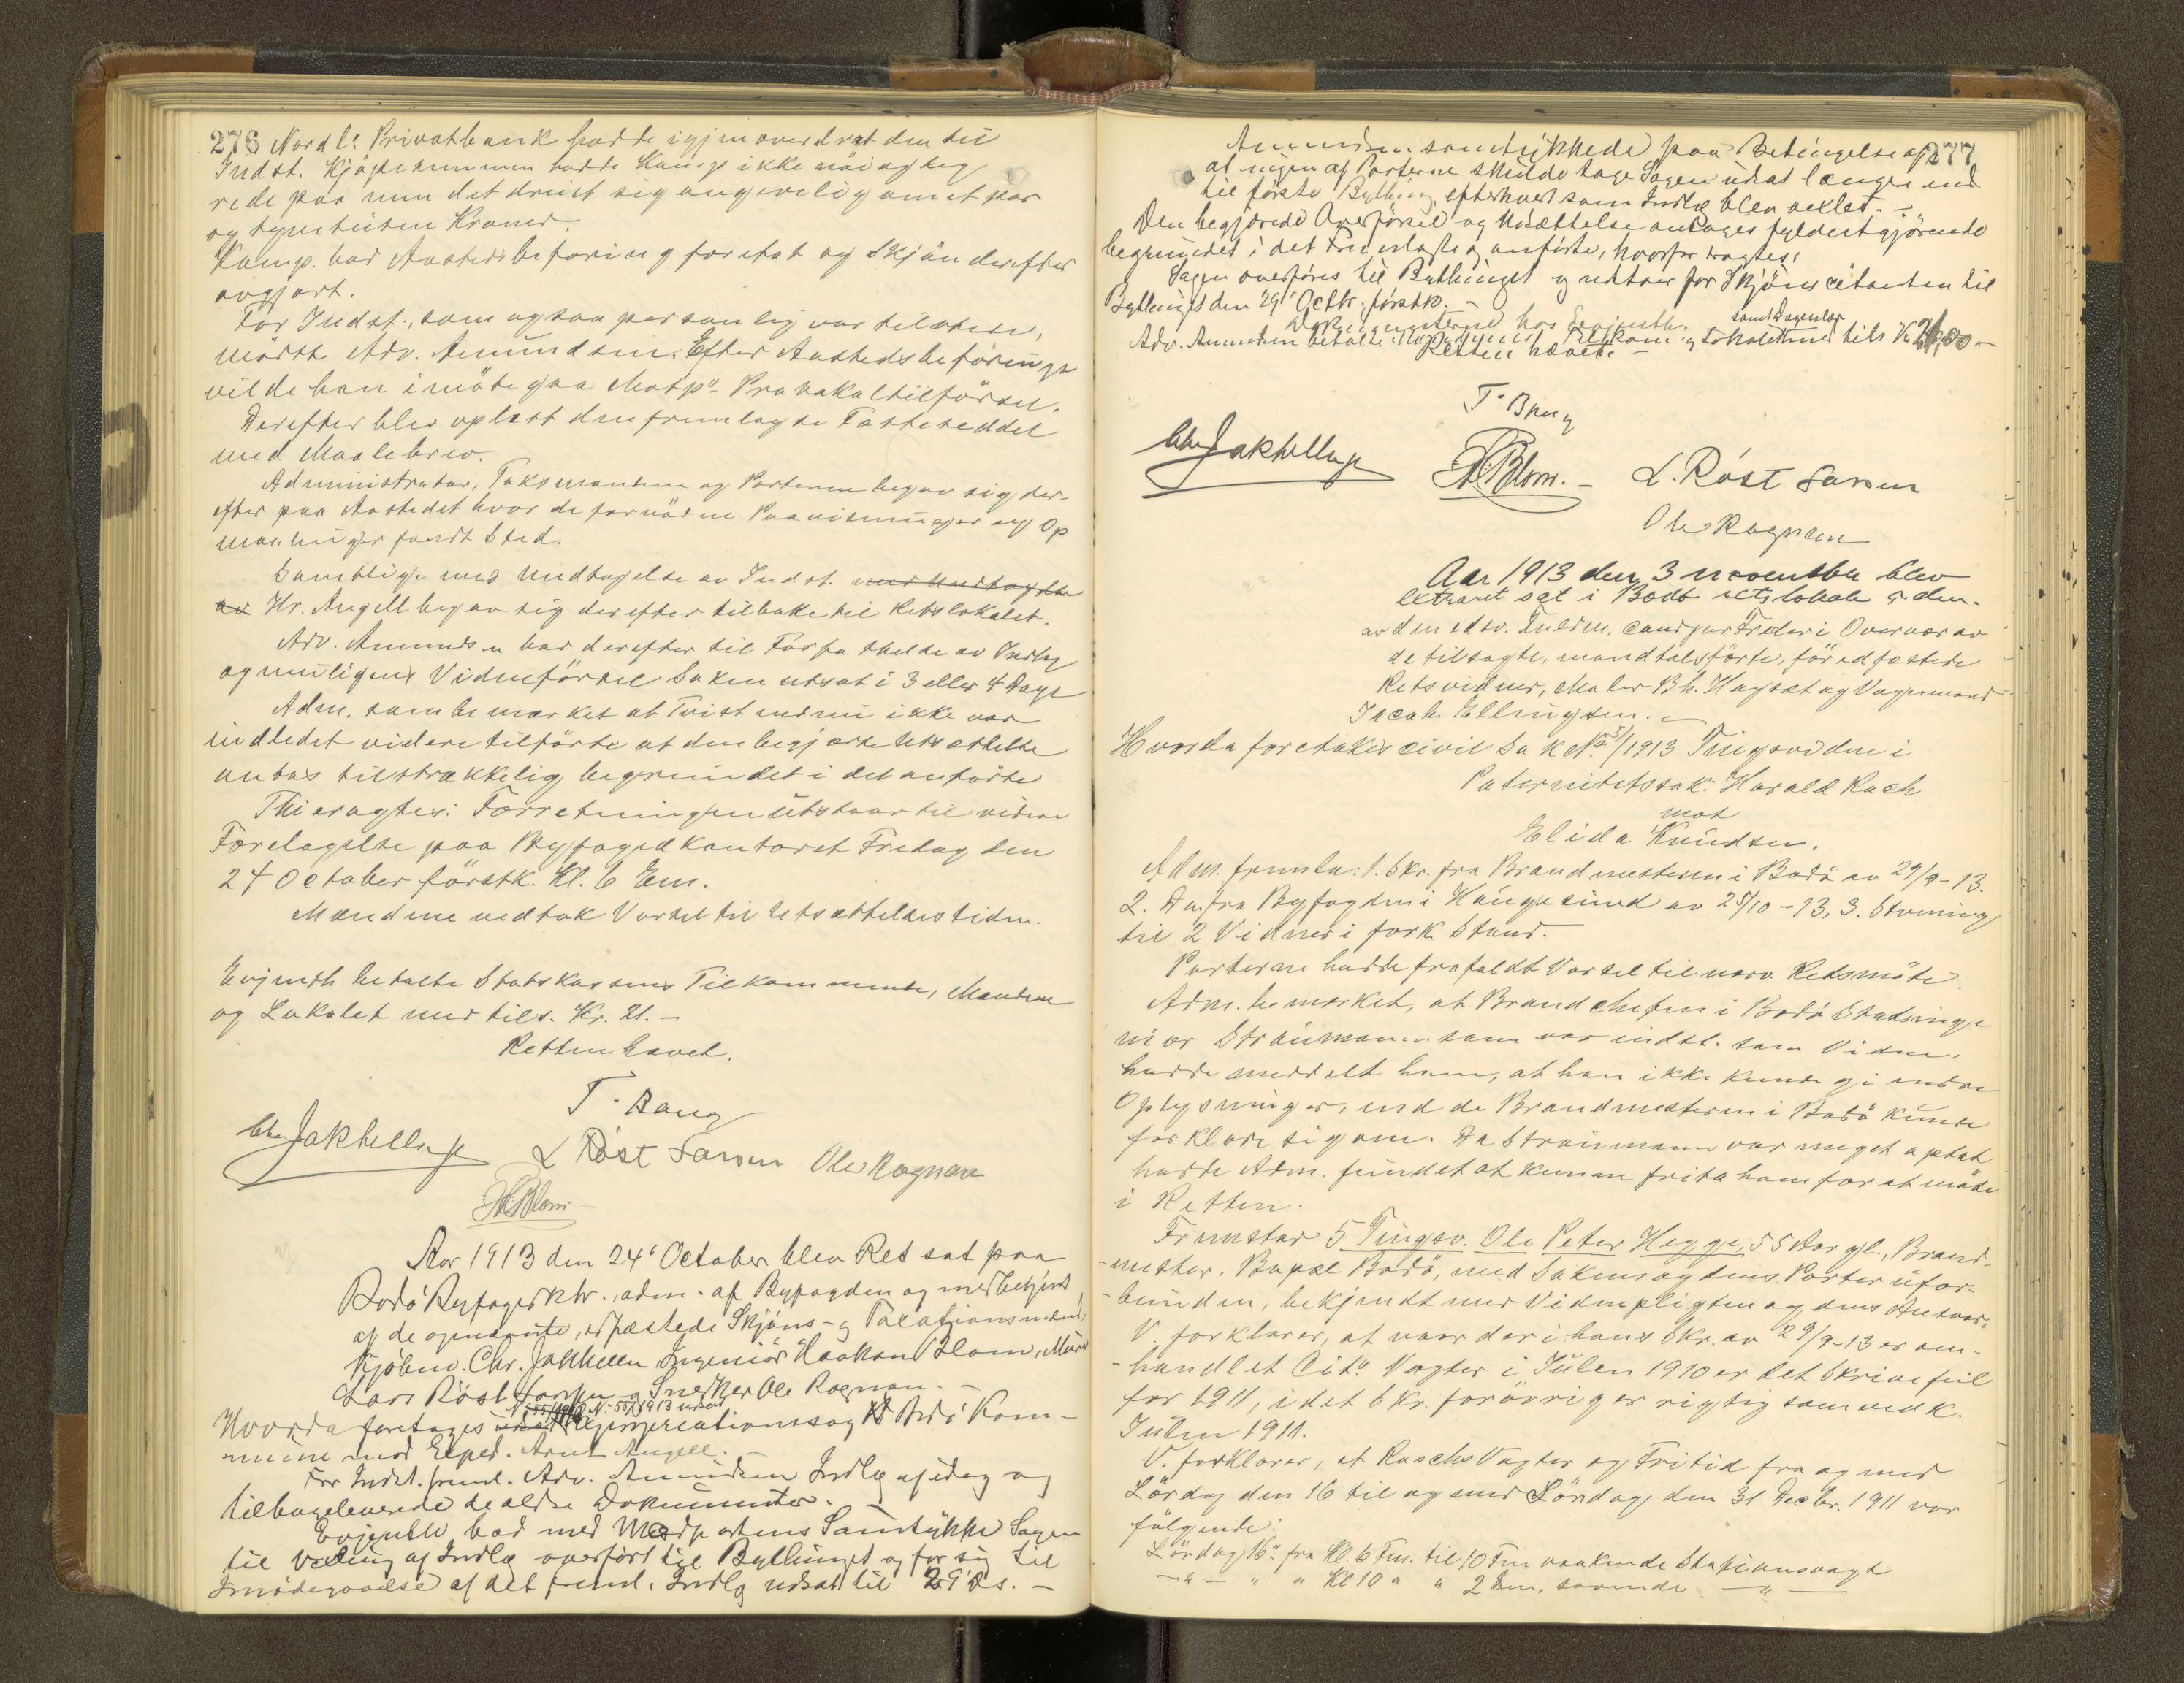 276 Nordl: Privatbank hadde igjen overdrat den til
Indst. Kjøpesummen hadde Komp ikke nøiagtig
rede paa men det dreiet sig angivelig om et par
og tyvetusen Kroner.
Komp. bad Aastedsbefaring foretat og Skjøn derefter
avgjort.
For Indst., som ogsaa personlig var tilstede,
mødte Adv. Amundsen. Efter Aastedsbeføringen
vilde han imøtegaa Motps Protokoltilførsel.
Derefter blev oplæst den fremlagte Festeseddel
med Maalebrev.
Administrator, Taksmændene og Parterne begav sig der-
efter paa Aastedet hvor de fornødne Paavisninger og Op
maalinger fandt Sted.
Samtlige med Undtagelse av Indst. med Undtagelse
av Hr. Angell begav sig derefter tilbake til Retslokalet.
Adv. Amundsen bad derefter til Forfattelse av Indlæg
og muligens Vidneførsel Saken utsat i 3 eller 4 Dage
Adm. som bemærket at Tvist endnu ikke var
indledet videre tilførte at den begjærte Utsættelse
antas tilstrækkelig begrundet i det anførte
Thi eragtes: Forretningen utstaar til videre
Foretagelse paa Byfogedkontoret Fredag den
24 October førstk. Kl. 6 Em.
Mændene vedtok Varsel til Utsættelsestiden.
Evjenth betalte Statskassens Tilkommende, Mændene
og Lokalet med tils. Kr. 21.-
Retten hævet.
T. Bang
Chr Jakhelln
L Røst Larsen Ole Rognan
H Blom
Aar 1913 den 24' October blev Ret sat paa
Bodø Byfogedktr., adm. af Byfogden og med betjent
af de opnævnte, edfæstede Skjøns- og Taxationsmænd,
Kjøbmd. Chr. Jakhelln Ingeniør Haakon Blom, Murer
Lars Røst Larsen og Snedker Ole Rognan.-
N. 55/1913 N. 55/1913 utsat
Hvorda foretages utsat Expropriationssag Bodø Kom-
mune mod Exped. Arnt Angell.-
For Indst. freml. Adv. Amundsen Indlæg af idag og
tilbageleverede de ældre Dokumenter.-
Evjenth bad med Modpartens Samtykke Sagen
til Vexling af Indlæg overført til Bythinget og for sig til
Imødegaaelse af det freml. Indlæg udsat til 29' ds.-
277
Amundsen samtykkede paa Betingelse af
at ingen af Parterne skulde tage Sagen udsat længer end
til første Bything, efterhvert som Indlæg blev vexlet.-
Den begjærede Overførsel og Udsættelse antages fyldestgjørende
begrundet i det Fremlagte og anførte, hvorfor eragtes:
Sagen overføres til Bythinget og udstaar for Skjønscitanten til
Bythinget den 29' Octbr. førstk.-
Dokumenterne hos Evjenth. samt Dagsnlæg
Adv. Amundsen betalte Mændenes Tilkom. og Lokalet med tils Kr 21,00-
Retten hævet.-
T. Bang
Chr Jakhelln
H Blom.- L. Røst Larsen
Ole Rognan
Aar 1913 den 3 november blev
extraret sat i Bodø rets lokale adm.
av den edsv. Fuldm. cand jur Freder i Overvær av
de tilsagte, mandtalsførte, før edfæstede
Retsvidner, Maler Bh. Hagset og Vognmand
Jacob Ellingsen.-
Hvorda foretokes civil Sak No 3/1913 Tingsvidne i
Paternitetssak: Harald Rach
mot
Elida Knudsen.
Adm. fremla: 1. Skr. fra Brandmesteren i Bodø av 29/9-13.
2. Do. fra Byfogden i Haugesund av 25/10-13, 3. Stevning
til 2 Vidner i fork. Stand.
Parterne hadde frafaldt Varsel til nærv. Retsmøte.
Adm. bemærket, at Brandchefen i Bodø Stadsinge-
niør Straumann som var indst. som Vidne,
hadde meddelt ham, at han ikke kunde gi andre
Oplysninger, end de Brandmesteren i Bodø kunde
forklare sig om. Da Straumann var meget optat
hadde Adm. fundet at kunne frita ham for at møte
i Retten.
Fremstod 5 Tingsv. Ole Peter Hegge, 55 Aar gl., Brand-
-mester. Bopæl Bodø, med Saken og dens Parter ufor-
-bunden, bekjendt med Vidnepligten og dens Ansvar.
V. forklarer, at naar der i hans Skr. av 29/9-13 er om-
-handlet Cits Vagter i Julen 1910 er det Skrivefeil
for 1911, idet Skr. forøvrig er rigtig som vedk.
Julen 1911.
V. forklarer, at Raschs Vagter og Fritid fra og med
Lørdag den 16 til og med Søndag den 31 Decbr. 1911 var
følgende:
Lørdag 16de fra Kl. 6 Fm. til 10 Fm vaakende Stationsvagt
-"- " " Kl 10 " " 2 Em. sovende -"-